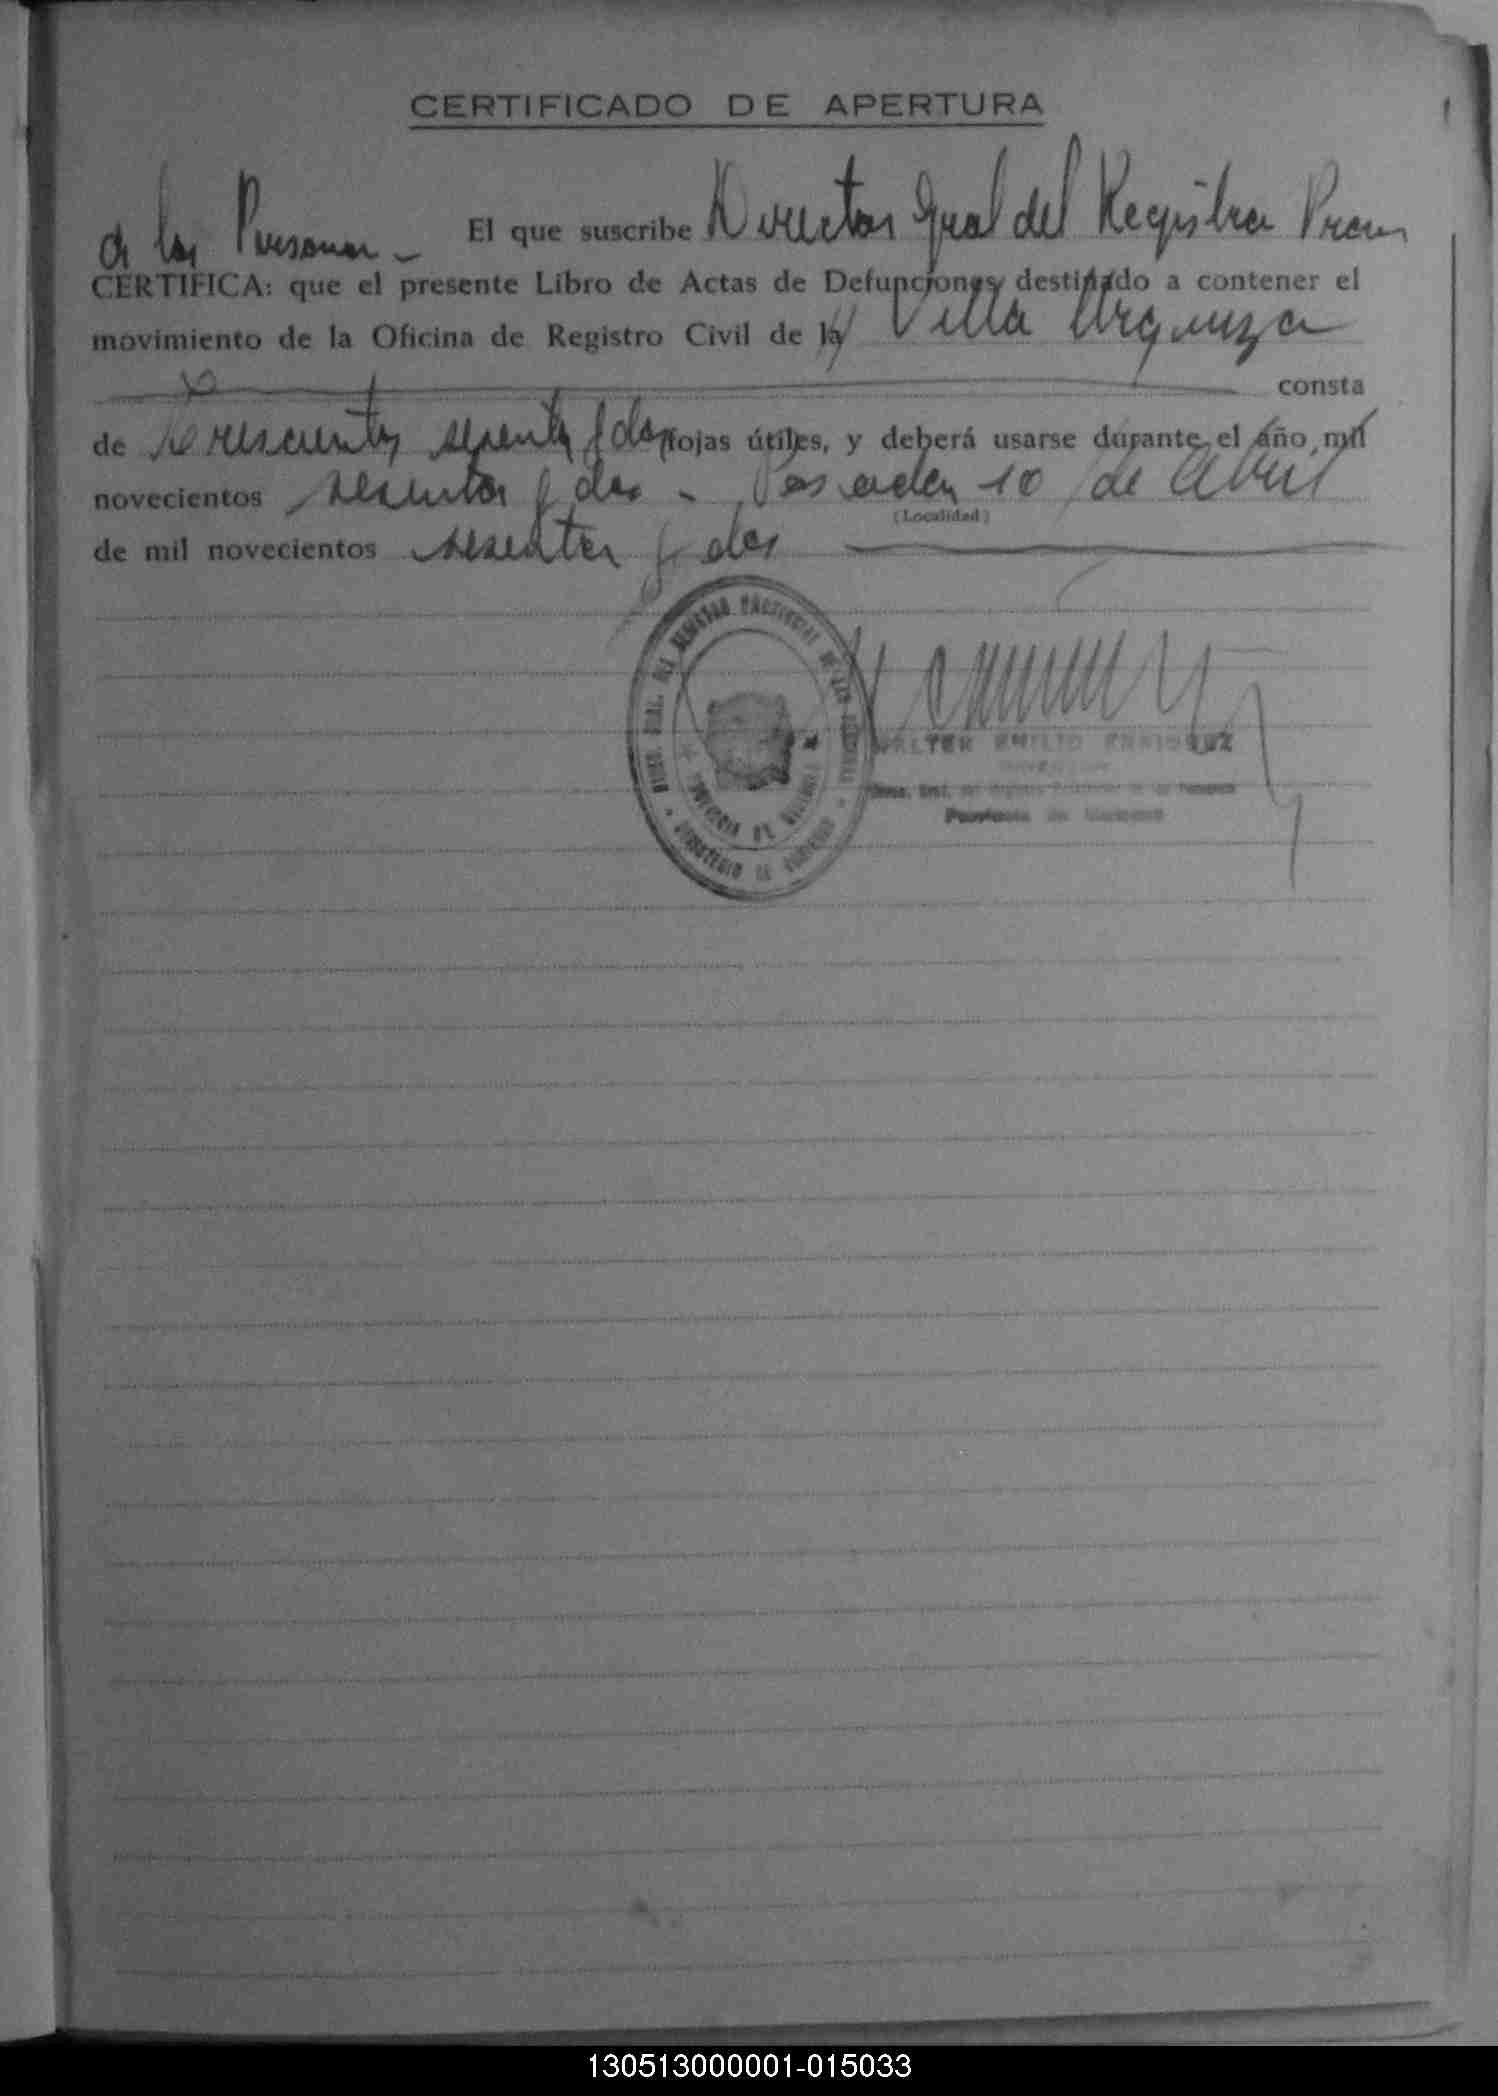 CERTIFICADO DE APERTURA
El que suscribe Director Gral del Registro Prov
de las Personas -
CERTIFICA: que el presente Libro de Actas de Defunciones destinado a contener el
movimiento de la Oficina de Registro Civil de la Villa Urquiza
consta
de trescientas sesenta y dos hojas útiles, y deberá usarse durante el año mil
novecientos sesenta y dos - Posadas 10 de Abril
(Localidad)
de mil novecientos sesenta y dos
DIREC. GRAL. DEL REGISTRO PROVINCIAL DE LAS PERSONAS
PROVINCIA DE MISIONES
MINISTERIO DE GOBIERNO
WALTER EMILIO ENRIQUEZ
Provincia de Misiones
130513000001-015033